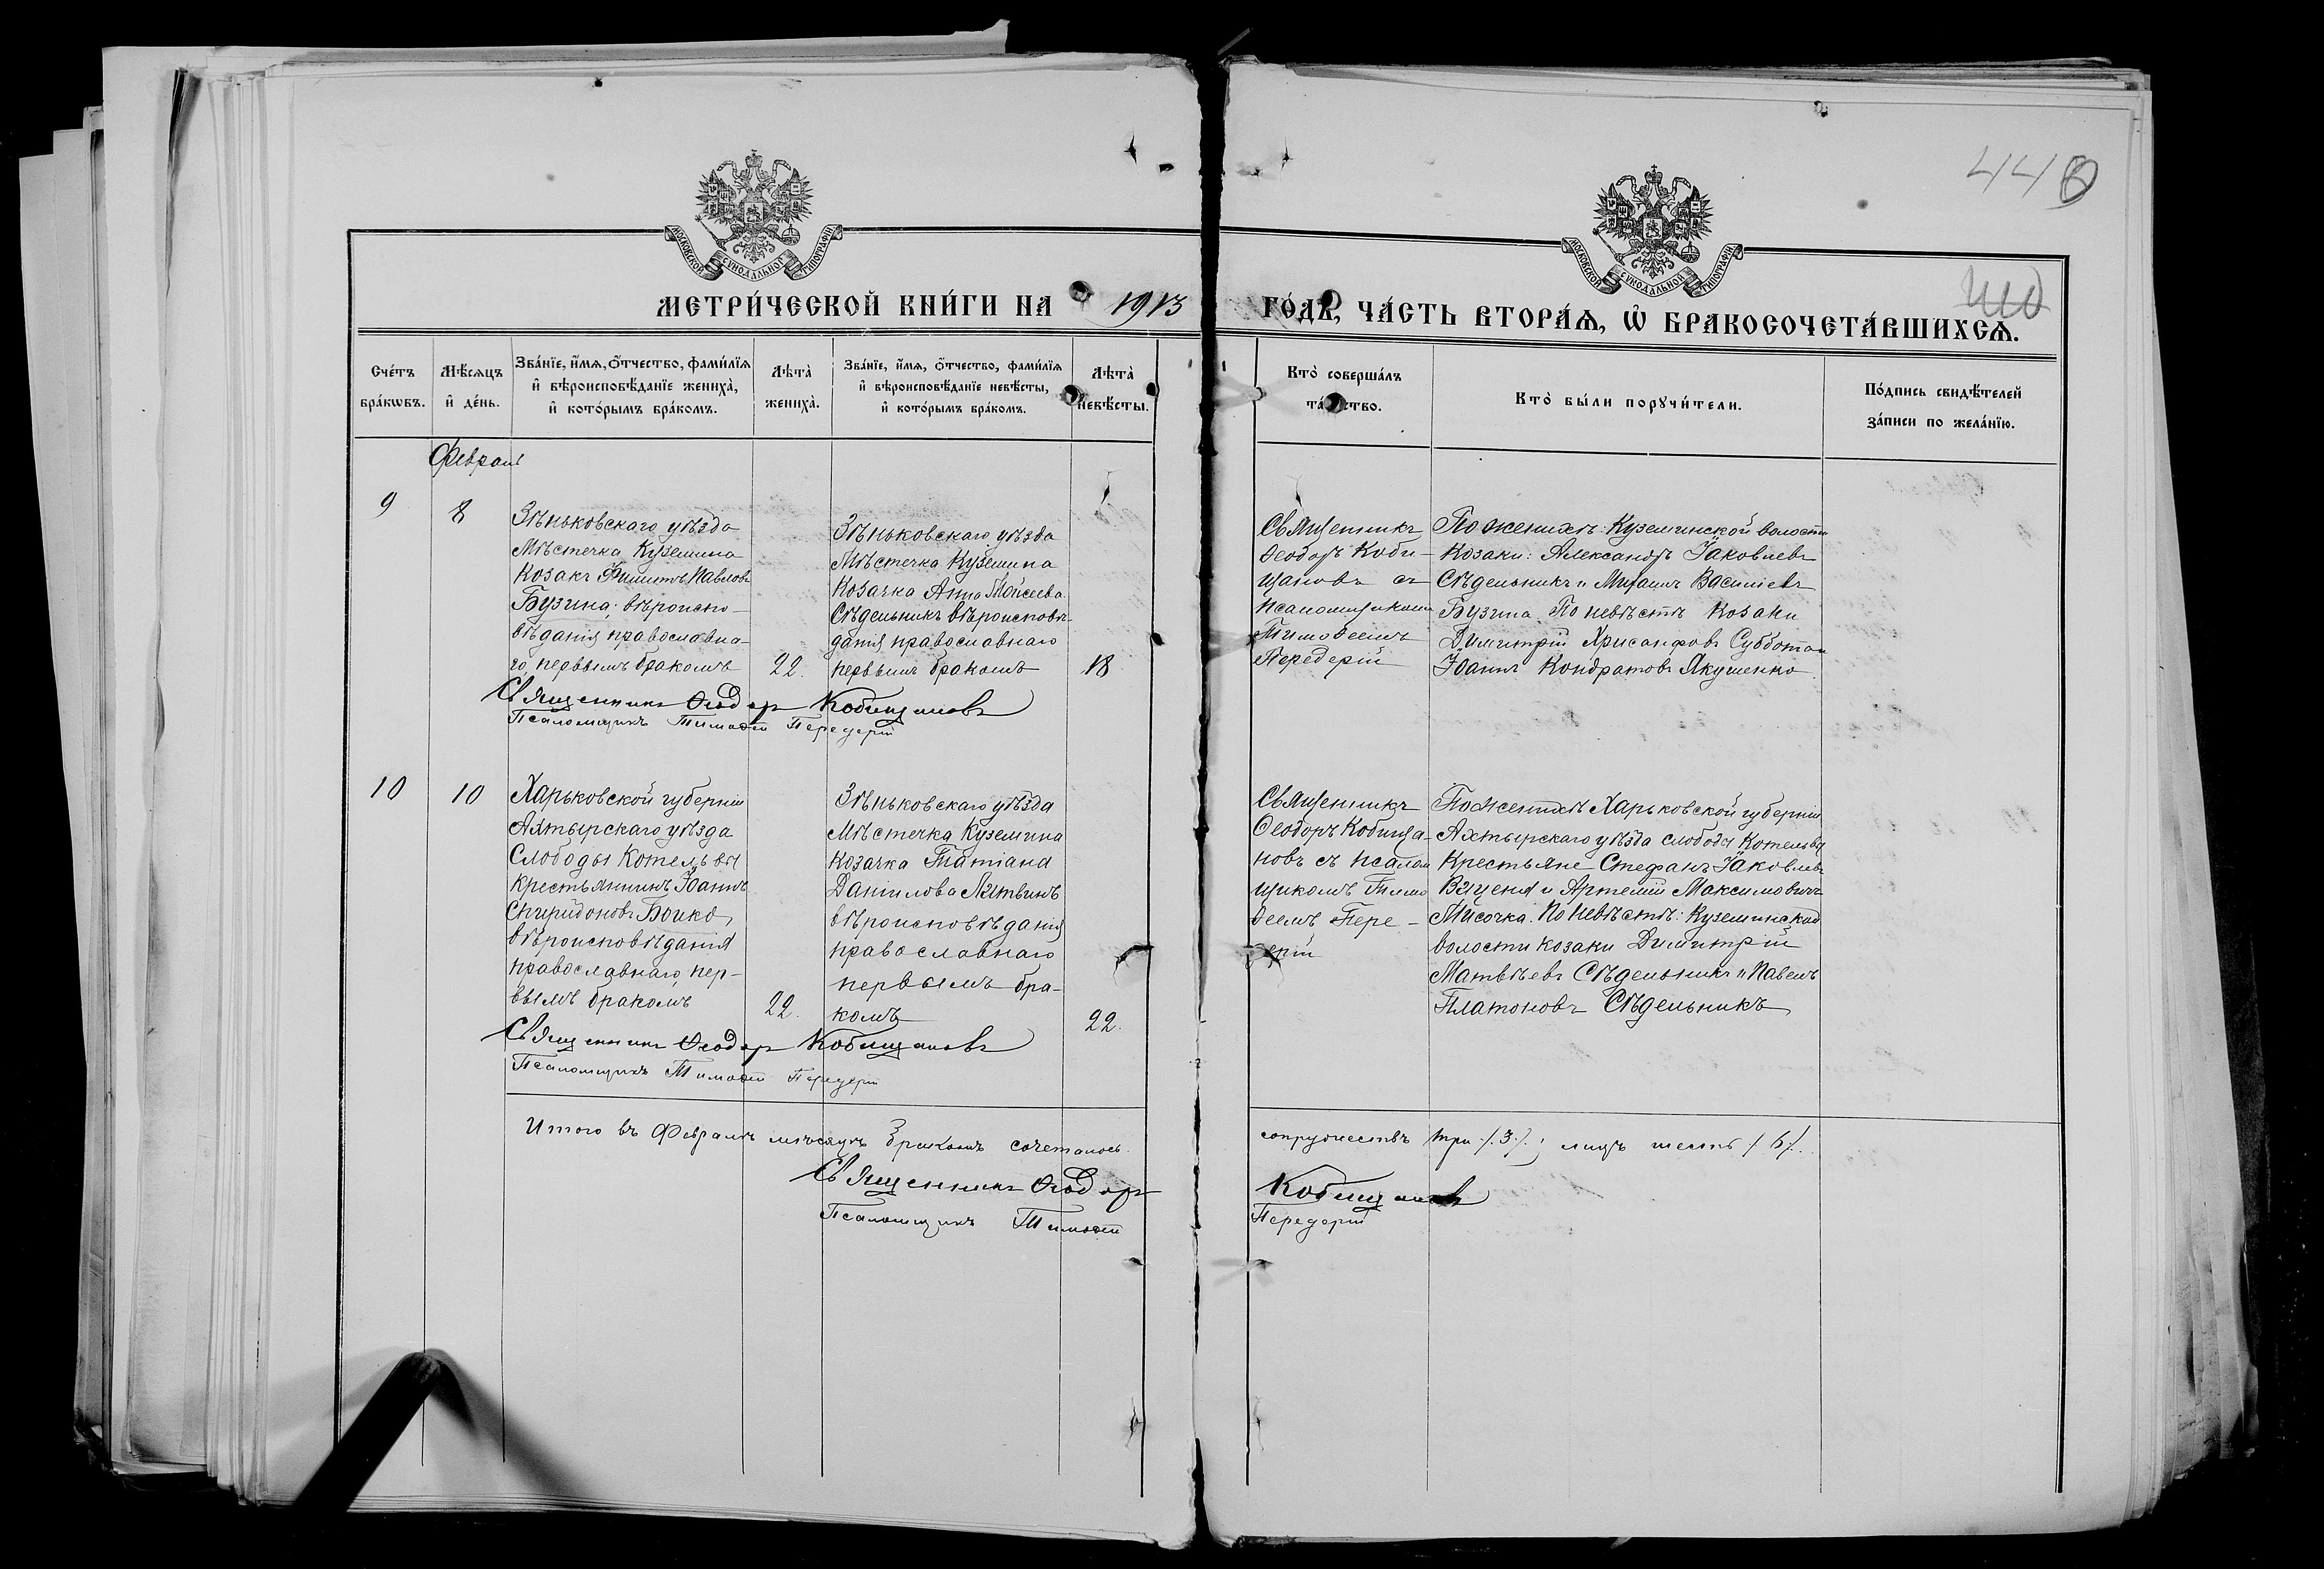 440
МОСКОВСКОЙ СѴНОДАЛЬНОЙ ТИПОГРАФІИ
МОСКОВСКОЙ СѴНОДАЛЬНОЙ ТИПОГРАФІИ
МЕТРИ́ЧЕСКОЙ КНИ́ГИ НА 1913 ГО́ДЪ, ЧА́СТЬ ВТОРА́Ѧ, Ѽ БРАКОСОЧЕТА́ВШИХСѦ.
Сче́тъ
бра́кѡвъ.
Мѣ́сѧцъ
и҆ де́нь.
Зва́нїе, и҆́мѧ, о҆́тчество, фами́лїѧ
и҆ вѣроисповѣ́данїе жениха̀,
и҆ кото́рымъ бра́комъ.
Лѣта̀
жениха̀.
Зва́нїе, и҆́мѧ, о҆́тчество, фами́лїѧ
и҆ вѣроисповѣ́данїе невѣ́сты,
и҆ кото́рымъ бра́комъ.
Лѣта̀
невѣ́сты.
Кто̀ соверша́лъ
та́инство.
Кто̀ бы́ли порꙋчи́тели.
По́дпись свидѣ́телей
за́писи по жела́нїю.
Февраль
9
8
Зѣньковскаго уѣзда
Мѣстечка Куземина
Козакъ Филиппъ Павловъ
Бузина, вѣроиспо-
вѣданія православна-
го, первымъ бракомъ
22.
Зѣньковскаго уѣзда
Мѣстечка Куземина
Козачка Анна Моисеева
Сѣдельникъ вѣроисповѣ-
данія православнаго
первымъ бракомъ
18
Священникъ
Ѳеодоръ Коби-
щановъ съ
псаломщикомъ
Тимоѳеемъ
Передерій
По женихѣ: Куземинской волости
Козаки: Александръ Іаковлевъ
Сѣдельникъ и Михаилъ Василіевъ
Бузина. По невѣстѣ Козаки
Димитрій Хрисанфовъ Субботa и
Іоаннъ Кондратовъ Якушенко
Священникъ Ѳеодоръ Кобищановъ
Псаломщикъ Тимоѳей Передерій
10
10
Харьковской губерніи
Ахтырскаго уѣзда
Слободы Котельвы
крестьянинъ Іоаннъ
Спиридоновъ Бойко,
вѣроисповѣданія
православнаго, пер-
вымъ бракомъ
22.
Зѣньковскаго уѣзда
Мѣстечка Куземина
Козачка Татіана
Даніилова Литвинъ
вѣроисповѣданія
православнаго
первымъ бра-
комъ
22.
Священникъ
Ѳеодоръ Кобища-
новъ съ псалом
щикомъ Тимо
ѳеемъ Пере-
дерій
По женихѣ Харьковской губерніи
Ахтырскаго уѣзда слободы Котельвы
Крестьяне Стефанъ Іаковлевъ
и Артемій Максимовичъ
По невѣстѣ: Куземинской
волости козаки Димитрій
Матвѣевъ Сѣдельникъ и Павелъ
Платоновъ Сѣдельникъ
Священникъ Ѳеодоръ Кобищановъ
Псаломщикъ Тимоѳей Передерій
Итого въ Февралѣ мѣсяцѣ бракомъ сочеталось сопружествъ три /.3./., лицъ шесть /.6./.
Священникъ Ѳеодоръ Кобищановъ
Псаломщикъ Тимоѳей Передерій